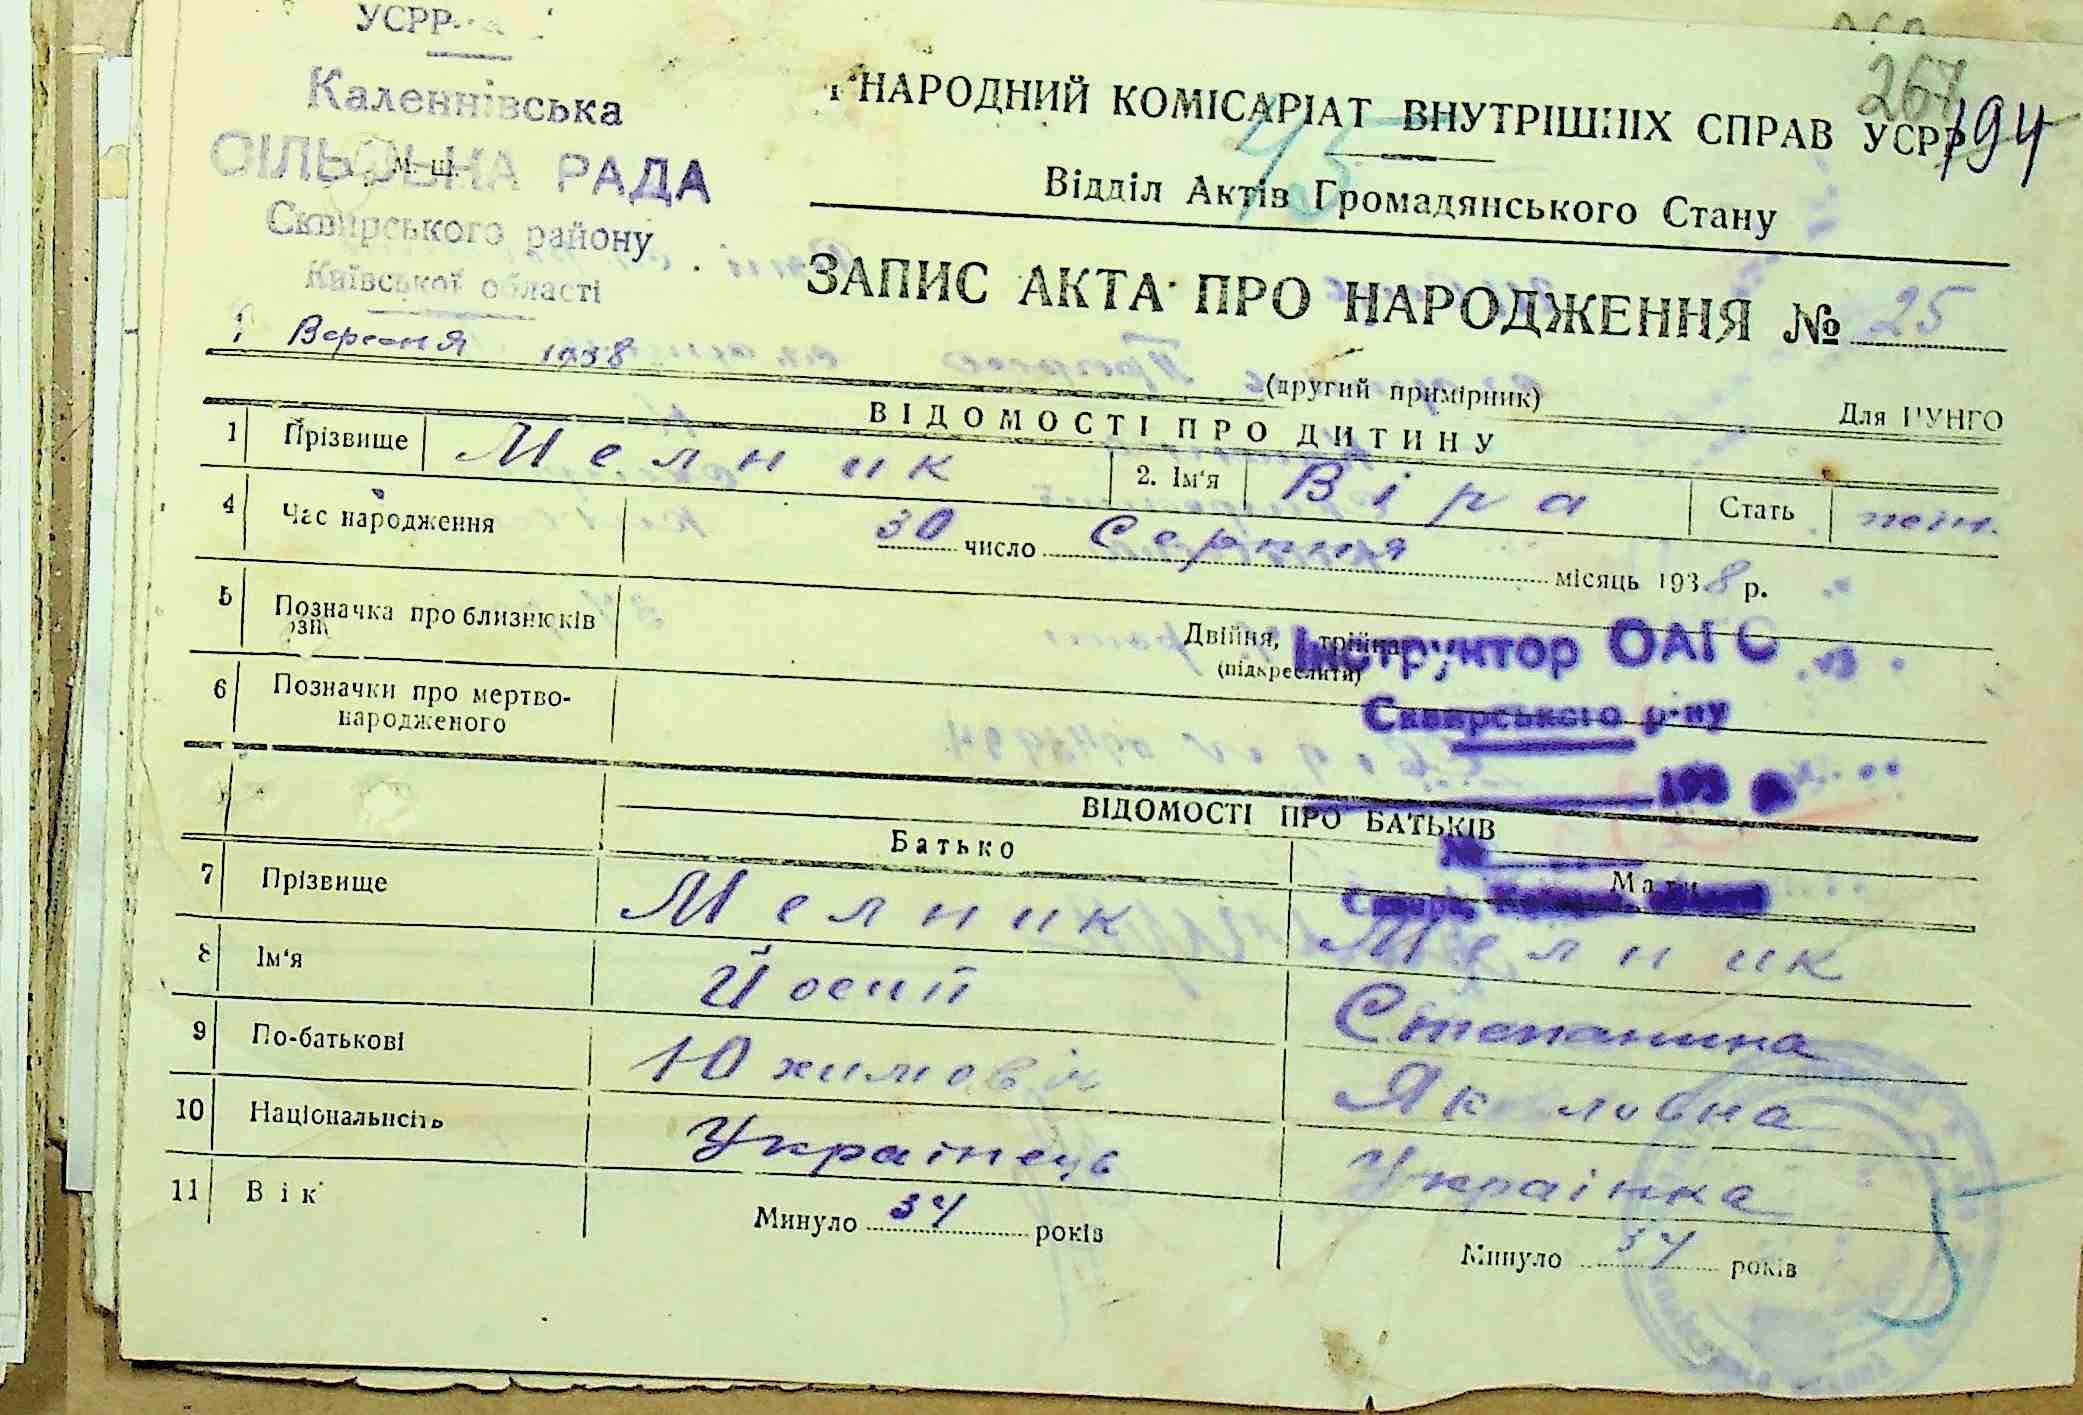 УСРР
Каленнівська
СІЛЬСЬКА РАДА
м. ш.
Сквирського району
Київської області
1 Вересня 1938
267
194
45
НАРОДНИЙ КОМІСАРІАТ ВНУТРІШНІХ СПРАВ УСРР
Відділ Актів Громадянського Стану
ЗАПИС АКТА ПРО НАРОДЖЕННЯ № 25
(другий примірник)
Для ЦУНГО
ВІДОМОСТІ ПРО ДИТИНУ
1 Прізвище Мелник 2. Ім'я Віра Стать
4 Час народження 30 число Серпня місяць 1938 р.
5 Позначка про близнюків Двійня, трійня
(підкреслити)
Інструктор ОАГС
Сквирського р-ну
6 Позначки про мертво-
народженого
193 р.
ВІДОМОСТІ ПРО БАТЬКІВ
№
Батько Мати
7 Прізвище Мелник Мелник
8 Ім'я Йосип Степанина
9 По-батькові Юхимовіч Якловна
10 Національність Українець Українка
11 Вік Минуло 34 років Минуло 34 років